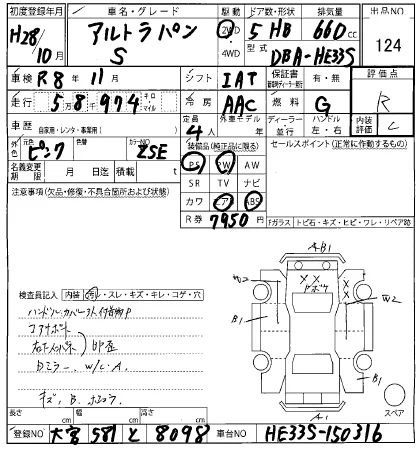 初度登録年月 車名・グレード 駆動 ドア数・形状 排気量 出品NO
H28/10月 アルトラパン S 2WD 4WD 5 HB 660 cc 124
型式 DBA-HE33S
車検 R8年 11月 シフト IAT 保証書 有・無 評価点
走行 58974 キロ・マイル 冷房 AAC 燃料 G R
車歴 自家用・レンタ・事業用( ) 定員 4人 外車モデル 年 ディーラー 並行 ハンドル 左・右 内装評価 C
外色 元色 ピンク 色替 カラーNO ZSE 装備品(純正品に限る) セールスポイント(正常に作動するもの)
名義変更期限 月 日迄 積載 t PS PW AW
注意事項(欠品・修復・不具合箇所および状態) SR TV ナビ
カワ エアB ABS
R券 7950円
Fガラス トビ石・キズ・ヒビ・ワレ・リペア跡
AB1
検査員記入 内装 汚レ・スレ・キズ・キレ・コゲ・穴
W2 XX XX W2
B1
ハンドル.
コアサポート
右
Dミラー. W/C.A.
キズ, B.
B1
スペア
A1
長さ cm 幅 cm 高さ cm
登録NO 大宮 581 と 8098 車台NO HE33S-150316